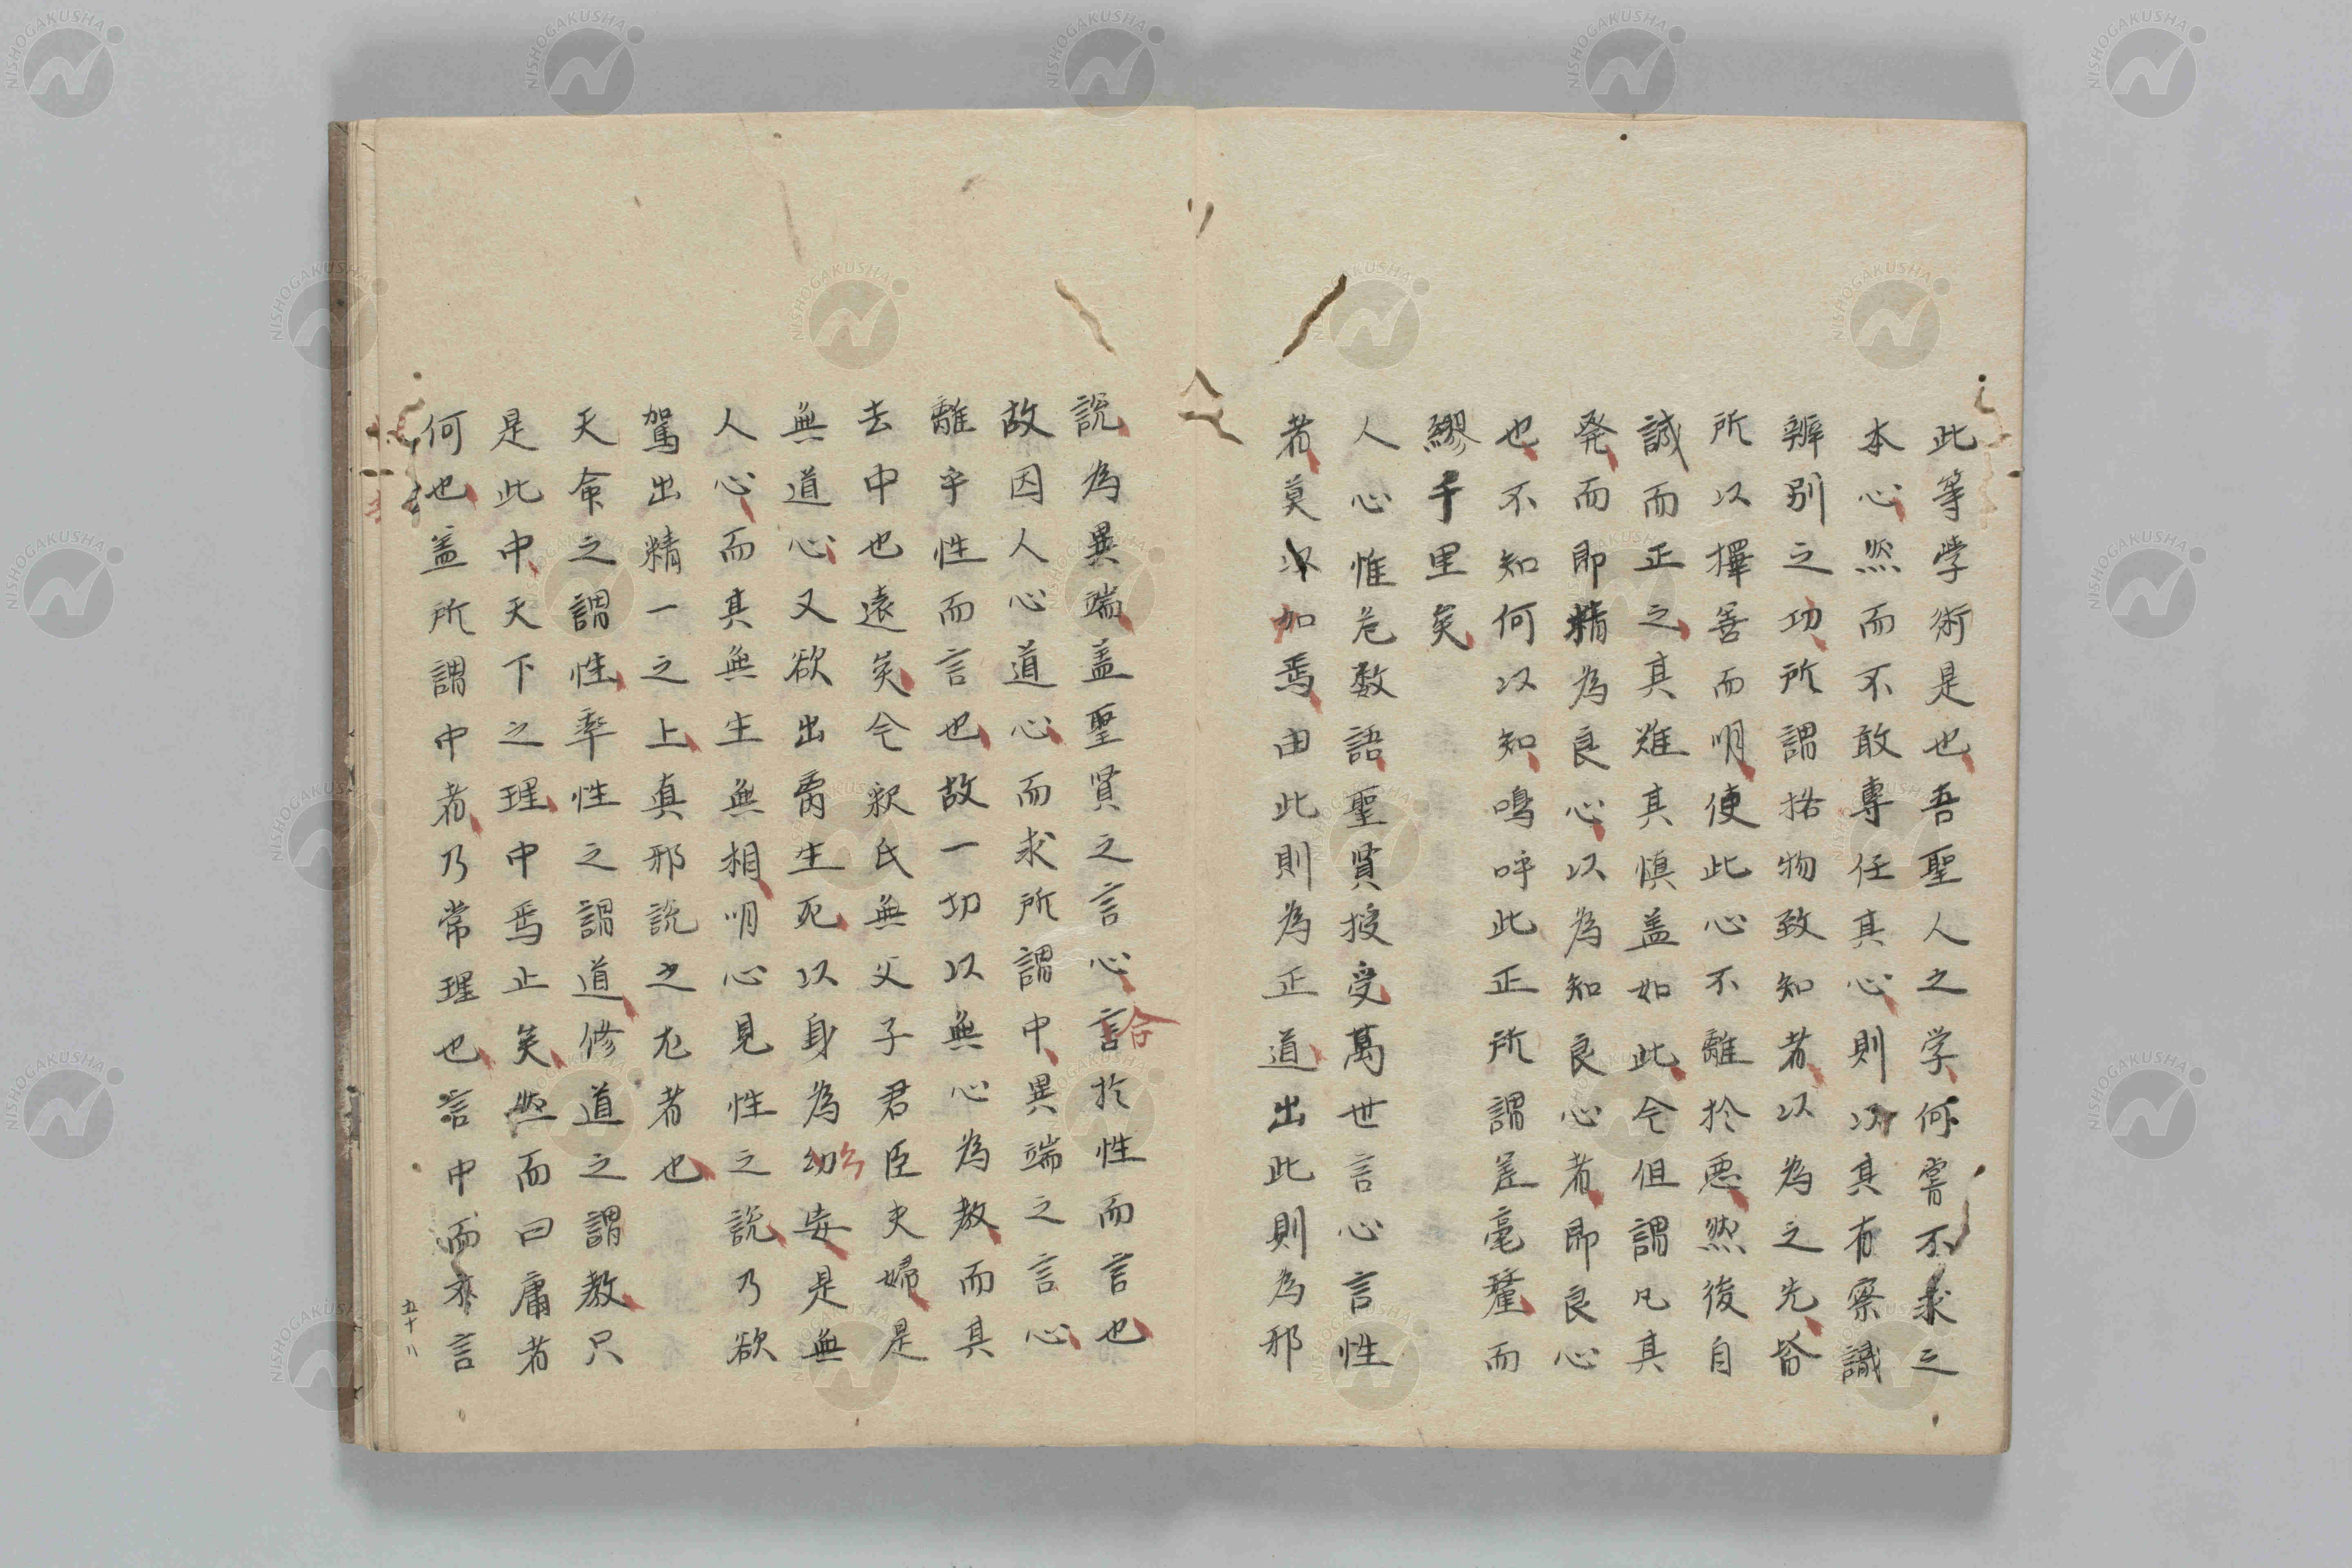 此等学術是也吾聖人之学何嘗不求之
本心然而不敢專任其心則以其有察識
辨别之功所謂格物致知者以為之先皆
所以擇善而明使此心不離於悪然後自
誠而正之其难其慎盖如此今但謂凡其
発而即精為良心以為知良心者即良心
也不知何以知鳴呼此正所謂差毫釐而
繆千里矣
人心惟危数語聖賢授受萬世言心言性
者莫加焉由此則為正道出此則為邪
説為異端盖聖賢之言心言於性而言也
合
故因人心道心而求所謂中異端之言心
離乎性而言也故一切以無心為教而其
去中也遠矣今釈氏無父子君臣夫婦是
無道心又欲出离生死以身為幼妄是無
人心而其無生無相明心見性之説乃欲
駕出精一之上真邪説之尤者也
天命之謂性率性之謂道修道之謂教只
是此中天下之理中焉止矣然而曰庸者
何也盖所謂中者乃常理也言中而不言
五十八
NISHOGAKUSHA